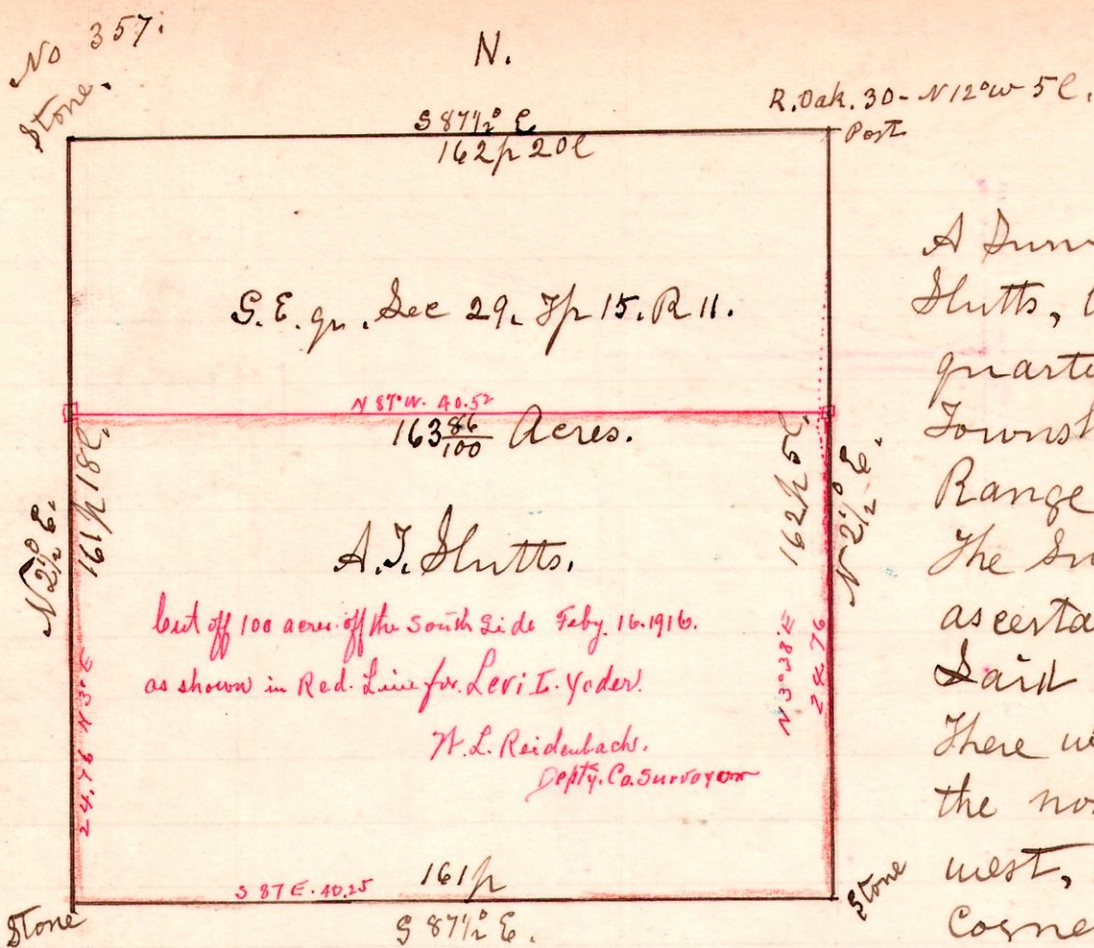 No 357.
N.
Stone.
R. Oak. 30 - N 12° W 5 l.
Post
S 87½° E
162p 20l
S. E. qr. Sec 29. Tp 15. R 11.
N 87° W. 40.52
163 86/100 Acres.
161p 18l.
162p 5l.
N 2½° E.
N 2½° E.
A. T. Slutts.
Cut off 100 acres off the South Side Feby. 16. 1916.
as shown in Red. Line for. Levi I. Yoder.
W. L. Reidenbach.
Depty. Co. Surveyor
24.76 N 3° E
N 3° 38' E
24.76
S 87 E. 40.25
161p
S 87½° E.
Stone
Stone
A Surv
Slutts,
quarte
Townsh
Range
The Su
ascerta
Said
There we
the no
west,
Corne